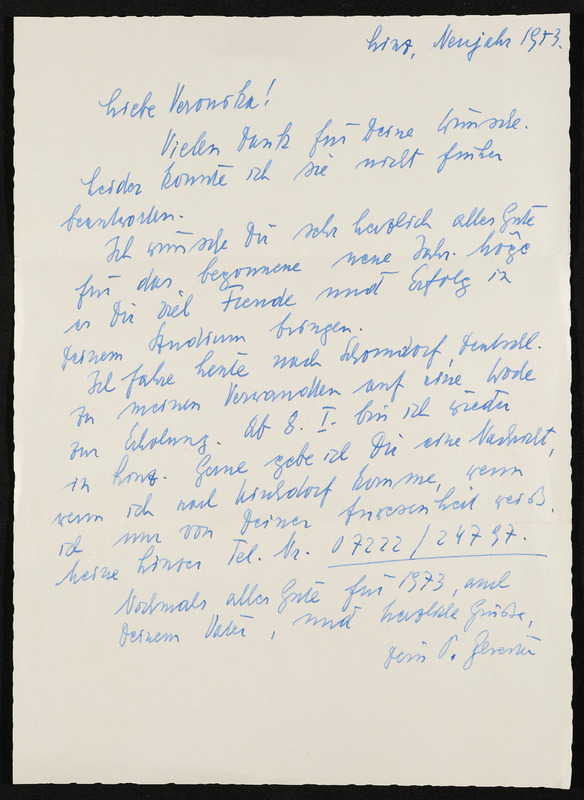 Linz, Neujahr 1973.
Liebe Veronika!
Vielen Dank für Deine Wünsche.
Leider konnte ich sie nicht früher
beantworten.
Ich wünsche Dir sehr herzlich alles Gute
für das begonnene neue Jahr. Möge
es Dir viel Freude und Erfolg in
Deinem Studium bringen.
Ich fahre heute nach Schorndorf, Deutschl.
zu meinen Verwandten auf eine Woche
zur Erholung. Ab 8. I. bin ich wieder
in Linz. Gerne gebe ich Dir eine Nachricht,
wenn ich nach Kirchdorf komme, wenn
ich nur von Deiner Anwesenheit weiß.
Meine Linzer Tel. Nr. 07222/24797.
Nochmals alles Gute für 1973, auch
Deinem Vater, und herzliche Grüße,
Dein P.